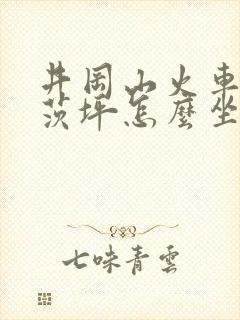 井岡山火車
茨坪怎麼坐
七味青雲